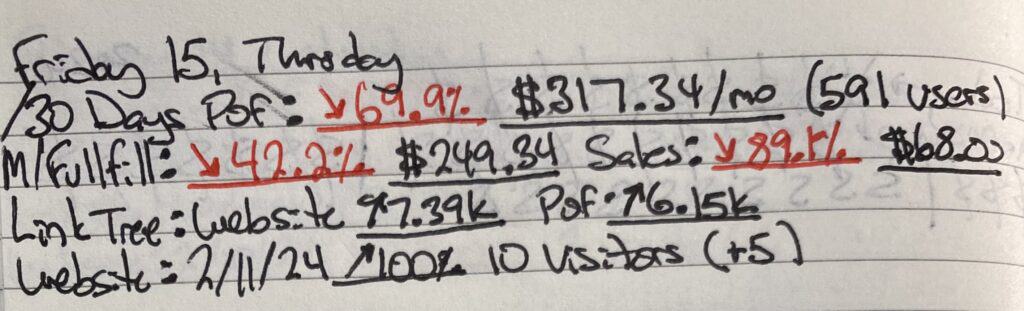 Friday 15, Thursday
/30 Days Pof: ↘69.9% $317.34/mo (591 users)
M/Fullfill: ↘42.2% $249.34 Sales: ↘89.1% $68.00
Link Tree: Website ↗7.39k Pof: ↗6.15k
Website: 2/11/24 ↗100% 10 Visitors (+5)